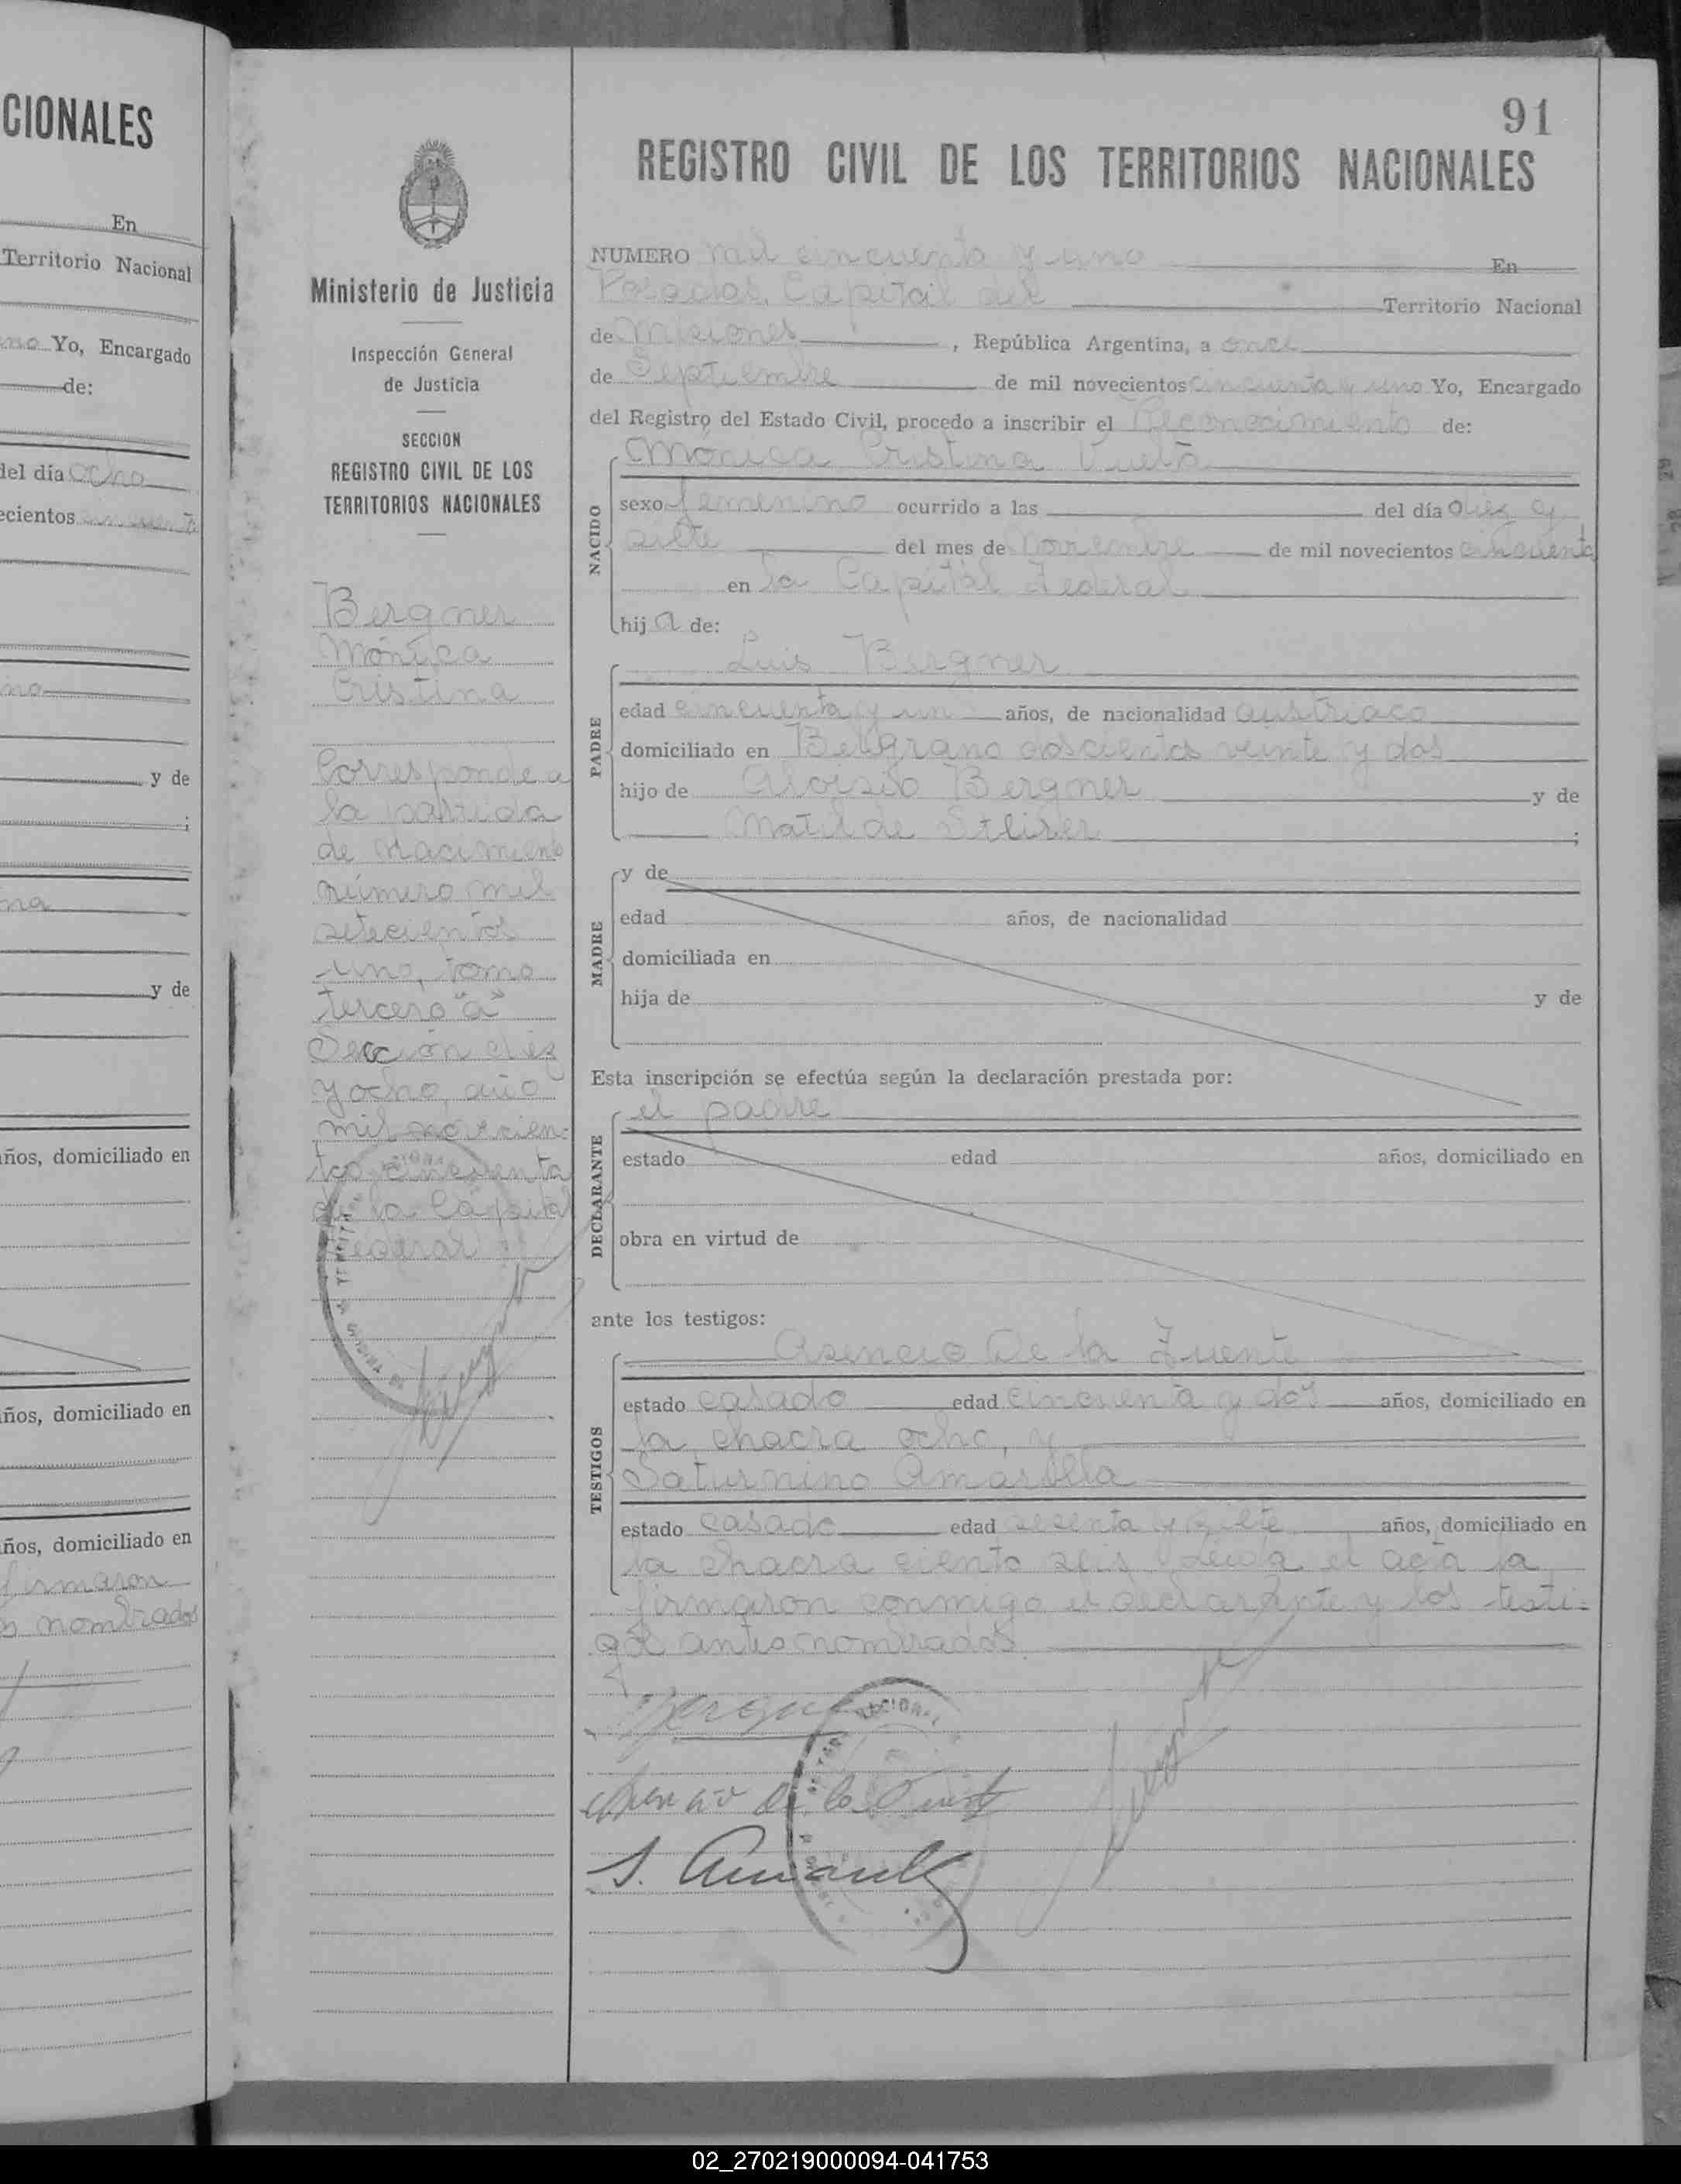 CIONALES
En
Territorio Nacional
Yo, Encargado
de:
del día ocho
ecientos
y de
y de
años, domiciliado en
años, domiciliado en
años, domiciliado en
firmaron
nombrados
Ministerio de Justicia
Inspección General
de Justicia
SECCION
REGISTRO CIVIL DE LOS
TERRITORIOS NACIONALES
Bergner
Mónica
Cristina
Corresponde a
la partida
de nacimiento
número mil
setecientos
uno, tomo
tercero "a"
Sección diez
y ocho, año
mil novecien-
tos cincuenta
de la Capital
Federal
91
REGISTRO CIVIL DE LOS TERRITORIOS NACIONALES
NUMERO mil cincuenta y uno En
Posadas, Capital del Territorio Nacional
de Misiones, República Argentina, a once
de Septiembre de mil novecientos cincuenta y uno Yo, Encargado
del Registro del Estado Civil, procedo a inscribir el Reconocimiento de:
Mónica Cristina
NACIDO
sexo femenino ocurrido a las del día diez y
siete del mes de Noviembre de mil novecientos cincuenta
en la Capital Federal
hija de:
PADRE
Luis Bergner
edad cincuenta y un años, de nacionalidad austriaco
domiciliado en Belgrano doscientos veinte y dos
hijo de Aloisio Bergner y de
Matilde ;
MADRE
y de
edad años, de nacionalidad
domiciliada en
hija de y de
Esta inscripción se efectúa según la declaración prestada por:
DECLARANTE
el padre
estado edad años, domiciliado en
obra en virtud de
ante los testigos:
TESTIGOS
Asencio De la Fuente
estado casado edad cincuenta y dos años, domiciliado en
la chacra ocho, y
Saturnino Amarilla
estado casado edad sesenta y siete años, domiciliado en
la chacra ciento seis. Leída el acta la
firmaron conmigo el declarante y los testi-
gos antes nombrados.
Asencio de la Fuente
S. Amarilla
02_270219000094-041753